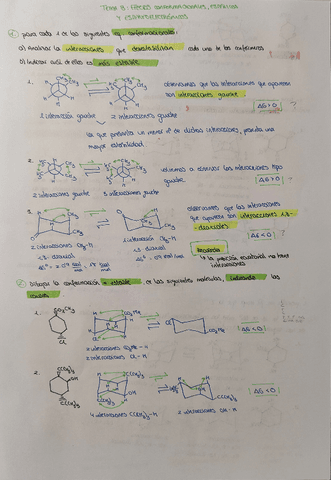 TEMA 3: EFECTOS CONFORMACIONALES, ESTÉRICOS
Y ESTEREOELECTRÓNICOS
1. para cada 1 de los siguientes eq. conformacionales:
a) Analiza las interacciones que desestabilizan cada uno de los confórmeros
b) Indicar cuál de ellos es más estable.
1.
observamos que las interacciones que aparecen
son interacciones gauche
ΔG > 0 ?
1 interacción gauche
2 interacciones gauche
la que presenta un menor nº de dichas interacciones, presenta una
mayor estabilidad
2.
volvemos a observar las interacciones tipo
gauche.
ΔG > 0 ?
2 interacciones gauche
3 interacciones gauche
3.
observamos que las interacciones
que aparecen son interacciones 1,3-
diaxiales
ΔG < 0 ?
2 interacciones CH₃-H
1,3 diaxial
1 interacción
1,3 diaxial
Recuerda
la posición ecuatorial no tiene
interacciones
2. Dibujar la conformación + estable de las siguientes moléculas, indicando las
causas
1.
CO₂Me
Cl
ΔG < 0
2 interacciones CO₂Me-H
2 interacciones Cl-H
2.
C(CH₃)₃
OH
C(CH₃)₃
ΔG < 0
4 interacciones C(CH₃)₃-H
2 interacciones OH-H